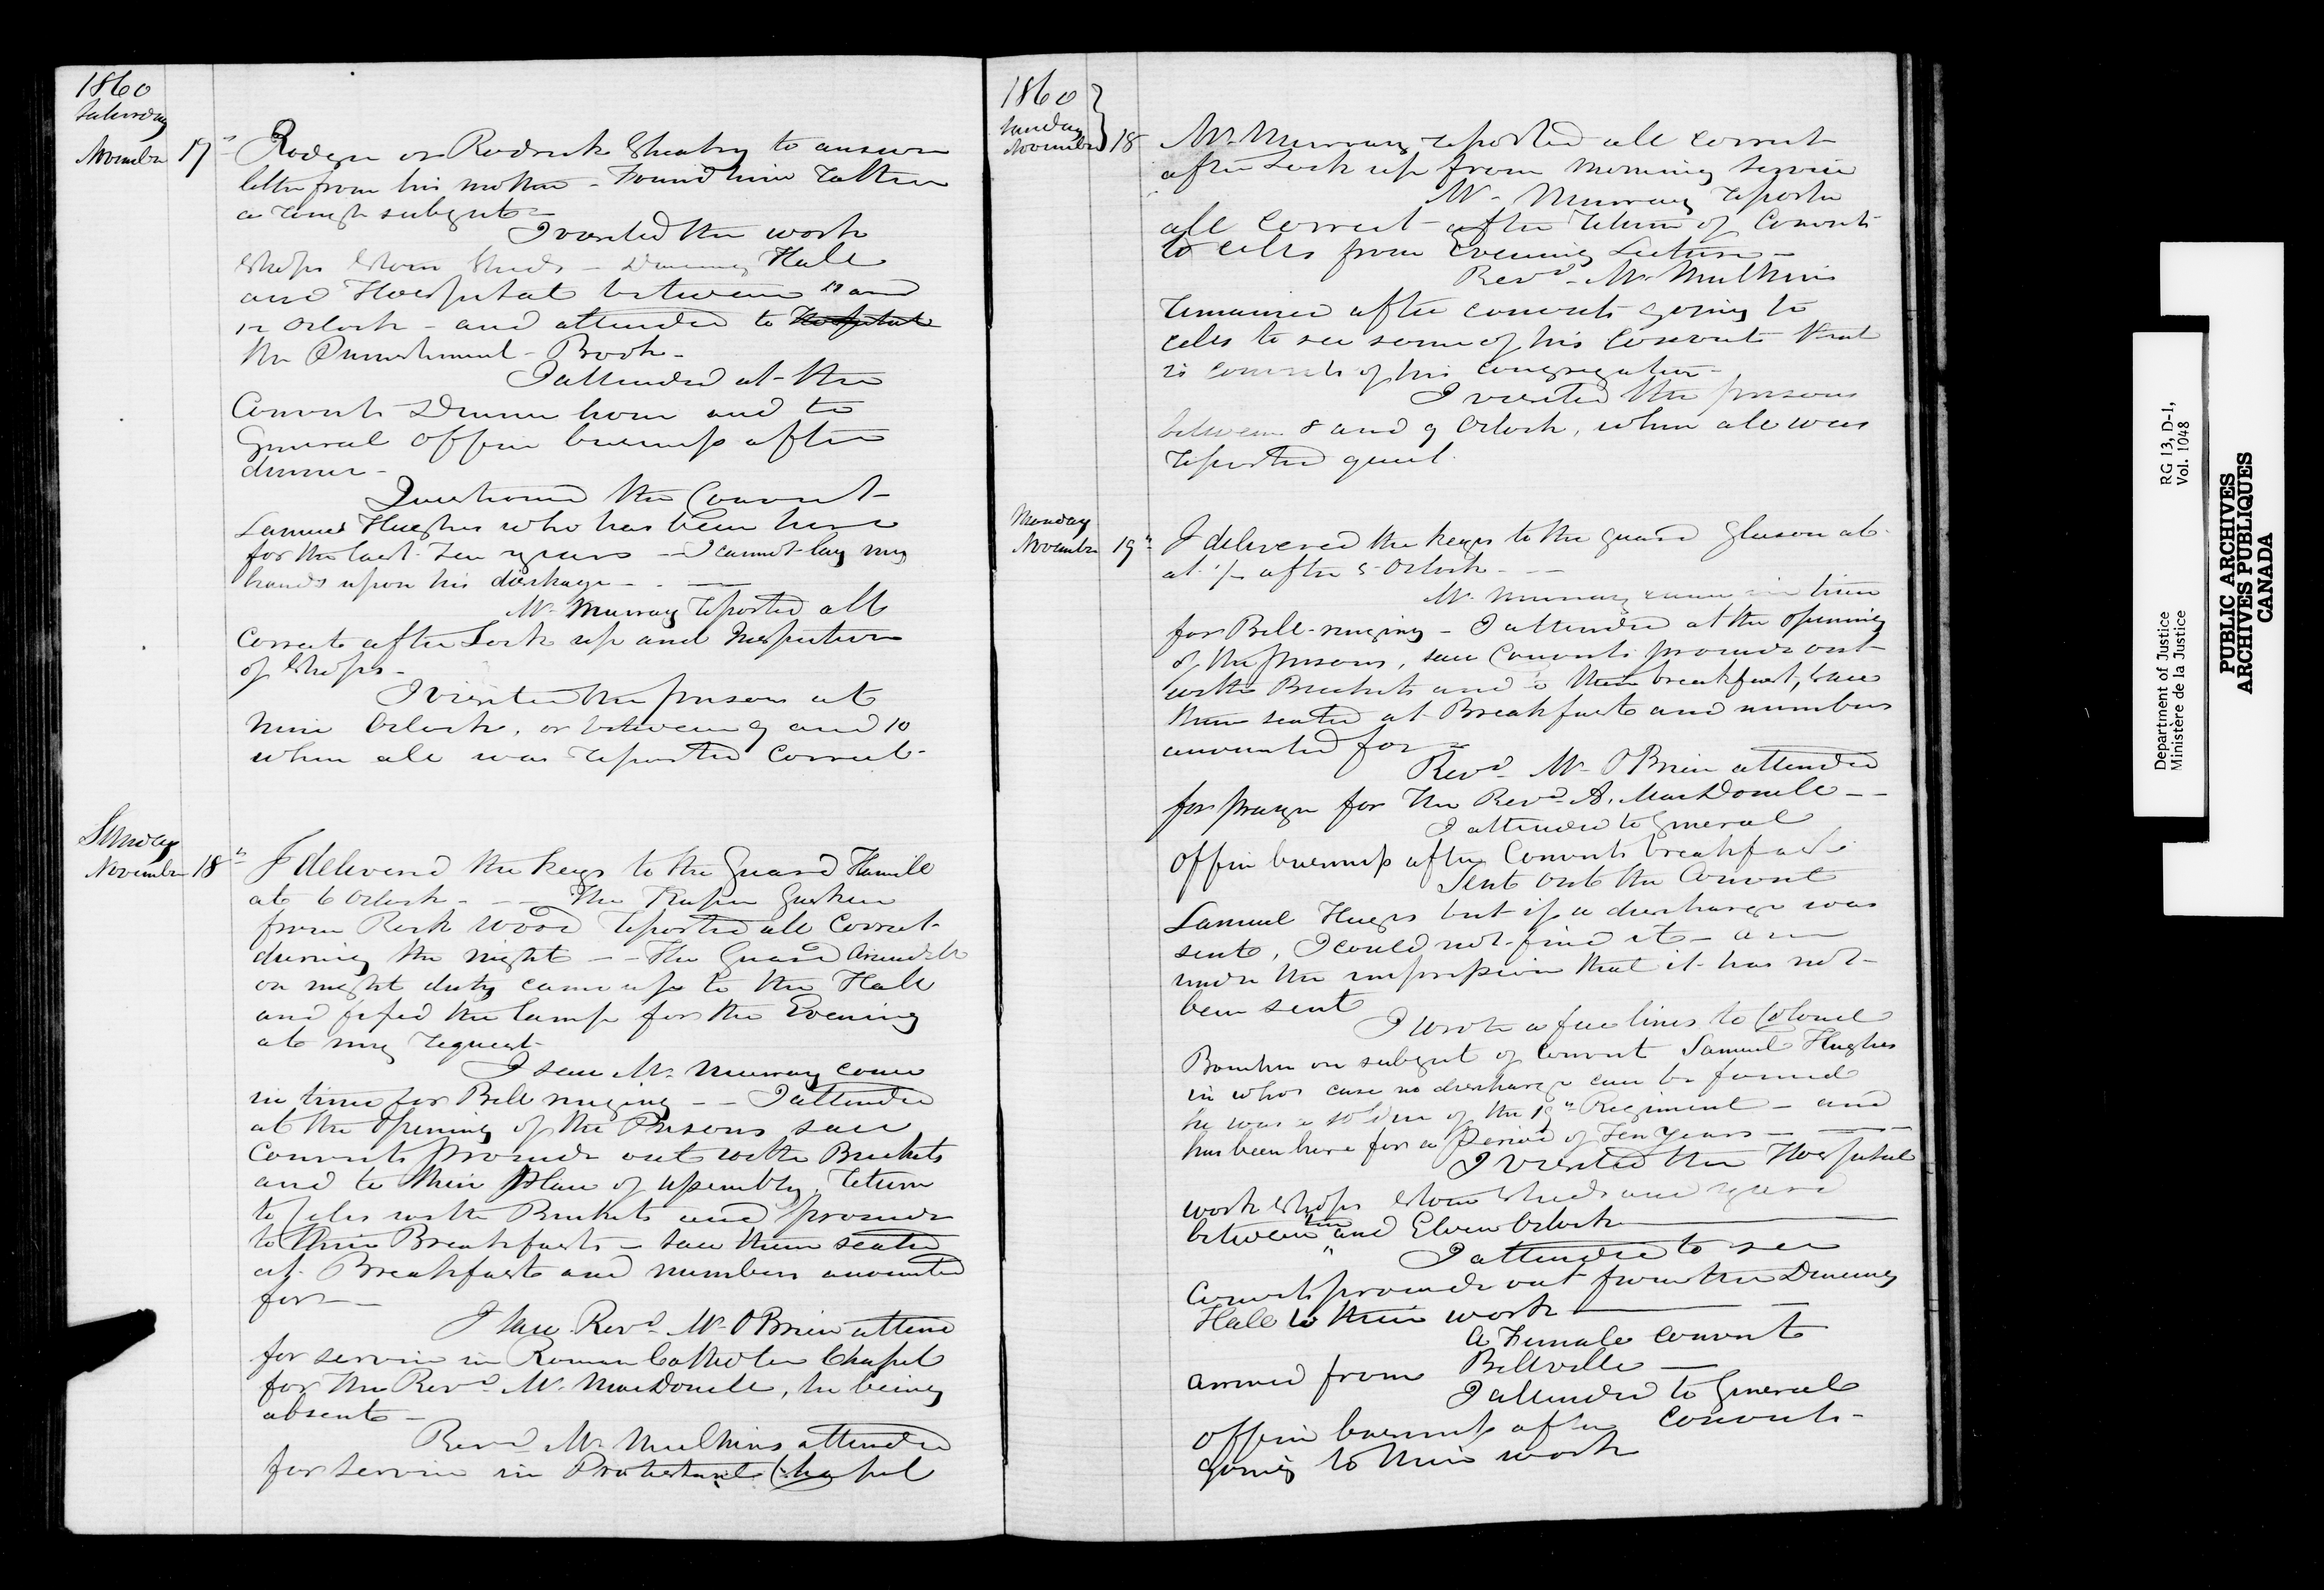 1860
Saturday
November 17th
Rodger or Rodrick Sheahy to answer
letter from his mother - Found him rather
a rough subject -
I visited the work
Shops Stone Sheds - Dineing Hall
and Hospital between 11 and
12 Oclock - and attended to Hospital
the Punishment - Book -
I attended at the
Convicts Dinner hour and to
General Office business after
dinner -
Questioned the Convict
Samuel Hughes who has been here
for the last ten years - I cannot lay my
hands upon his discharge - - -
Mr Murray reported all
Correct after Lock up and Inspection
of Shops -
I visited the prison at
Nine Oclock, or between 9 and 10
when all was reported Correct -
Sunday
November 18th
I delivered the keys to the Guard Hamill
at 6 Oclock - - - The Keeper
from Rock Wood reported all Correct
during the night - - The Guard
on night duty came up to the Hall
and fixed the lamp for the Evening
at my request -
I saw Mr Murray come
in time for Bell ringing - - I attended
at the Opening of the Prisons saw
Convicts proceede out with Buckets
and to their Place of assembly, return
to Celes with Buckets and proceede
to their Breakfasts - saw them seated
at Breakfast and numbers accounted
for -
I saw Revd Mr OBrien attend
for service in Roman Catholic Chapel
for The Revd Mr MacDonell, he being
absent -
Revd Mr Mulkins attended
for Service in Protestant Chapel
1860
Sunday
November 18
Mr Murray reported all correct
after Lock up from Morning Service
Mr Murray reported
all Correct after return of Convicts
to cells from Evening Lecture -
Revd Mr Mulkins
remained after convicts going to
cells to see some of his Convicts that
is convicts of his congregation -
I visited the prisons
between 8 and 9 Oclock, when all was
reported quiet.
Monday
November 19th
I delivered the keys to the guard Gleeson at
at 1/2 after 5 Oclock - - -
Mr Murray came in time
for Bell-ringing - I attended at the Opening
of the prisons, saw Convicts proceede out
with Buckets and to their breakfast, saw
them seated at Breakfast and numbers
accounted for -
Revd Mr OBrien attended
for prayer for The Revd A. MacDonell - -
I attended to General
office business after Convicts breakfast
Sent out the Convict
Samuel Huges but if a discharge was
sent, I could not find it - am
under the impression that it has not
been sent
I wrote a few lines to Colonel
on subject of Convict Samuel Hughes
in whos case no discharge can be found
he was a soldier of the 19th Regiment - and
has been here for a Period of Ten Years -
I visited the Hospital
work Shops Stone Sheds and yard
between ten and Eleven Oclock
I attended to see
Convicts proceede out from the Dineing
Hall to their work
A Female Convict
arrived from Bellville -
I attended to General
office business after Convicts -
going to their work
Department of Justice
Ministère de la Justice
RG 13, D-1,
Vol. 1048
PUBLIC ARCHIVES
ARCHIVES PUBLIQUES
CANADA